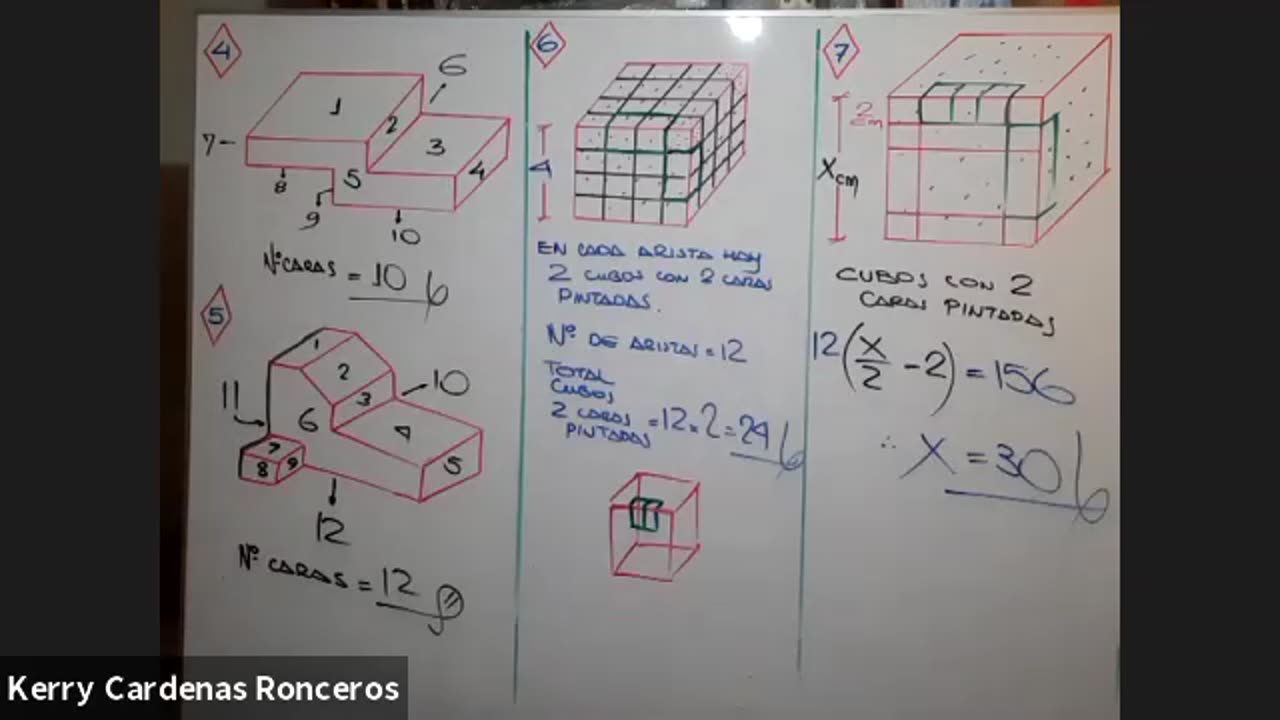 4
6
1
2
7-
3
4
5
8
9
10
Nº CARAS = 10
5
1
2
3
10
11
6
4
7
8
9
5
12
Nº CARAS = 12
6
4
EN CADA ARISTA HAY
2 CUBOS CON 2 CARAS
PINTADAS.
Nº DE ARISTAS = 12
TOTAL
CUBOS
2 CARAS = 12 × 2 = 24
PINTADAS
7
2
cm
X cm
CUBOS CON 2
CARAS PINTADAS
12(X/2 - 2) = 156
∴ X = 30
Kerry Cardenas Ronceros